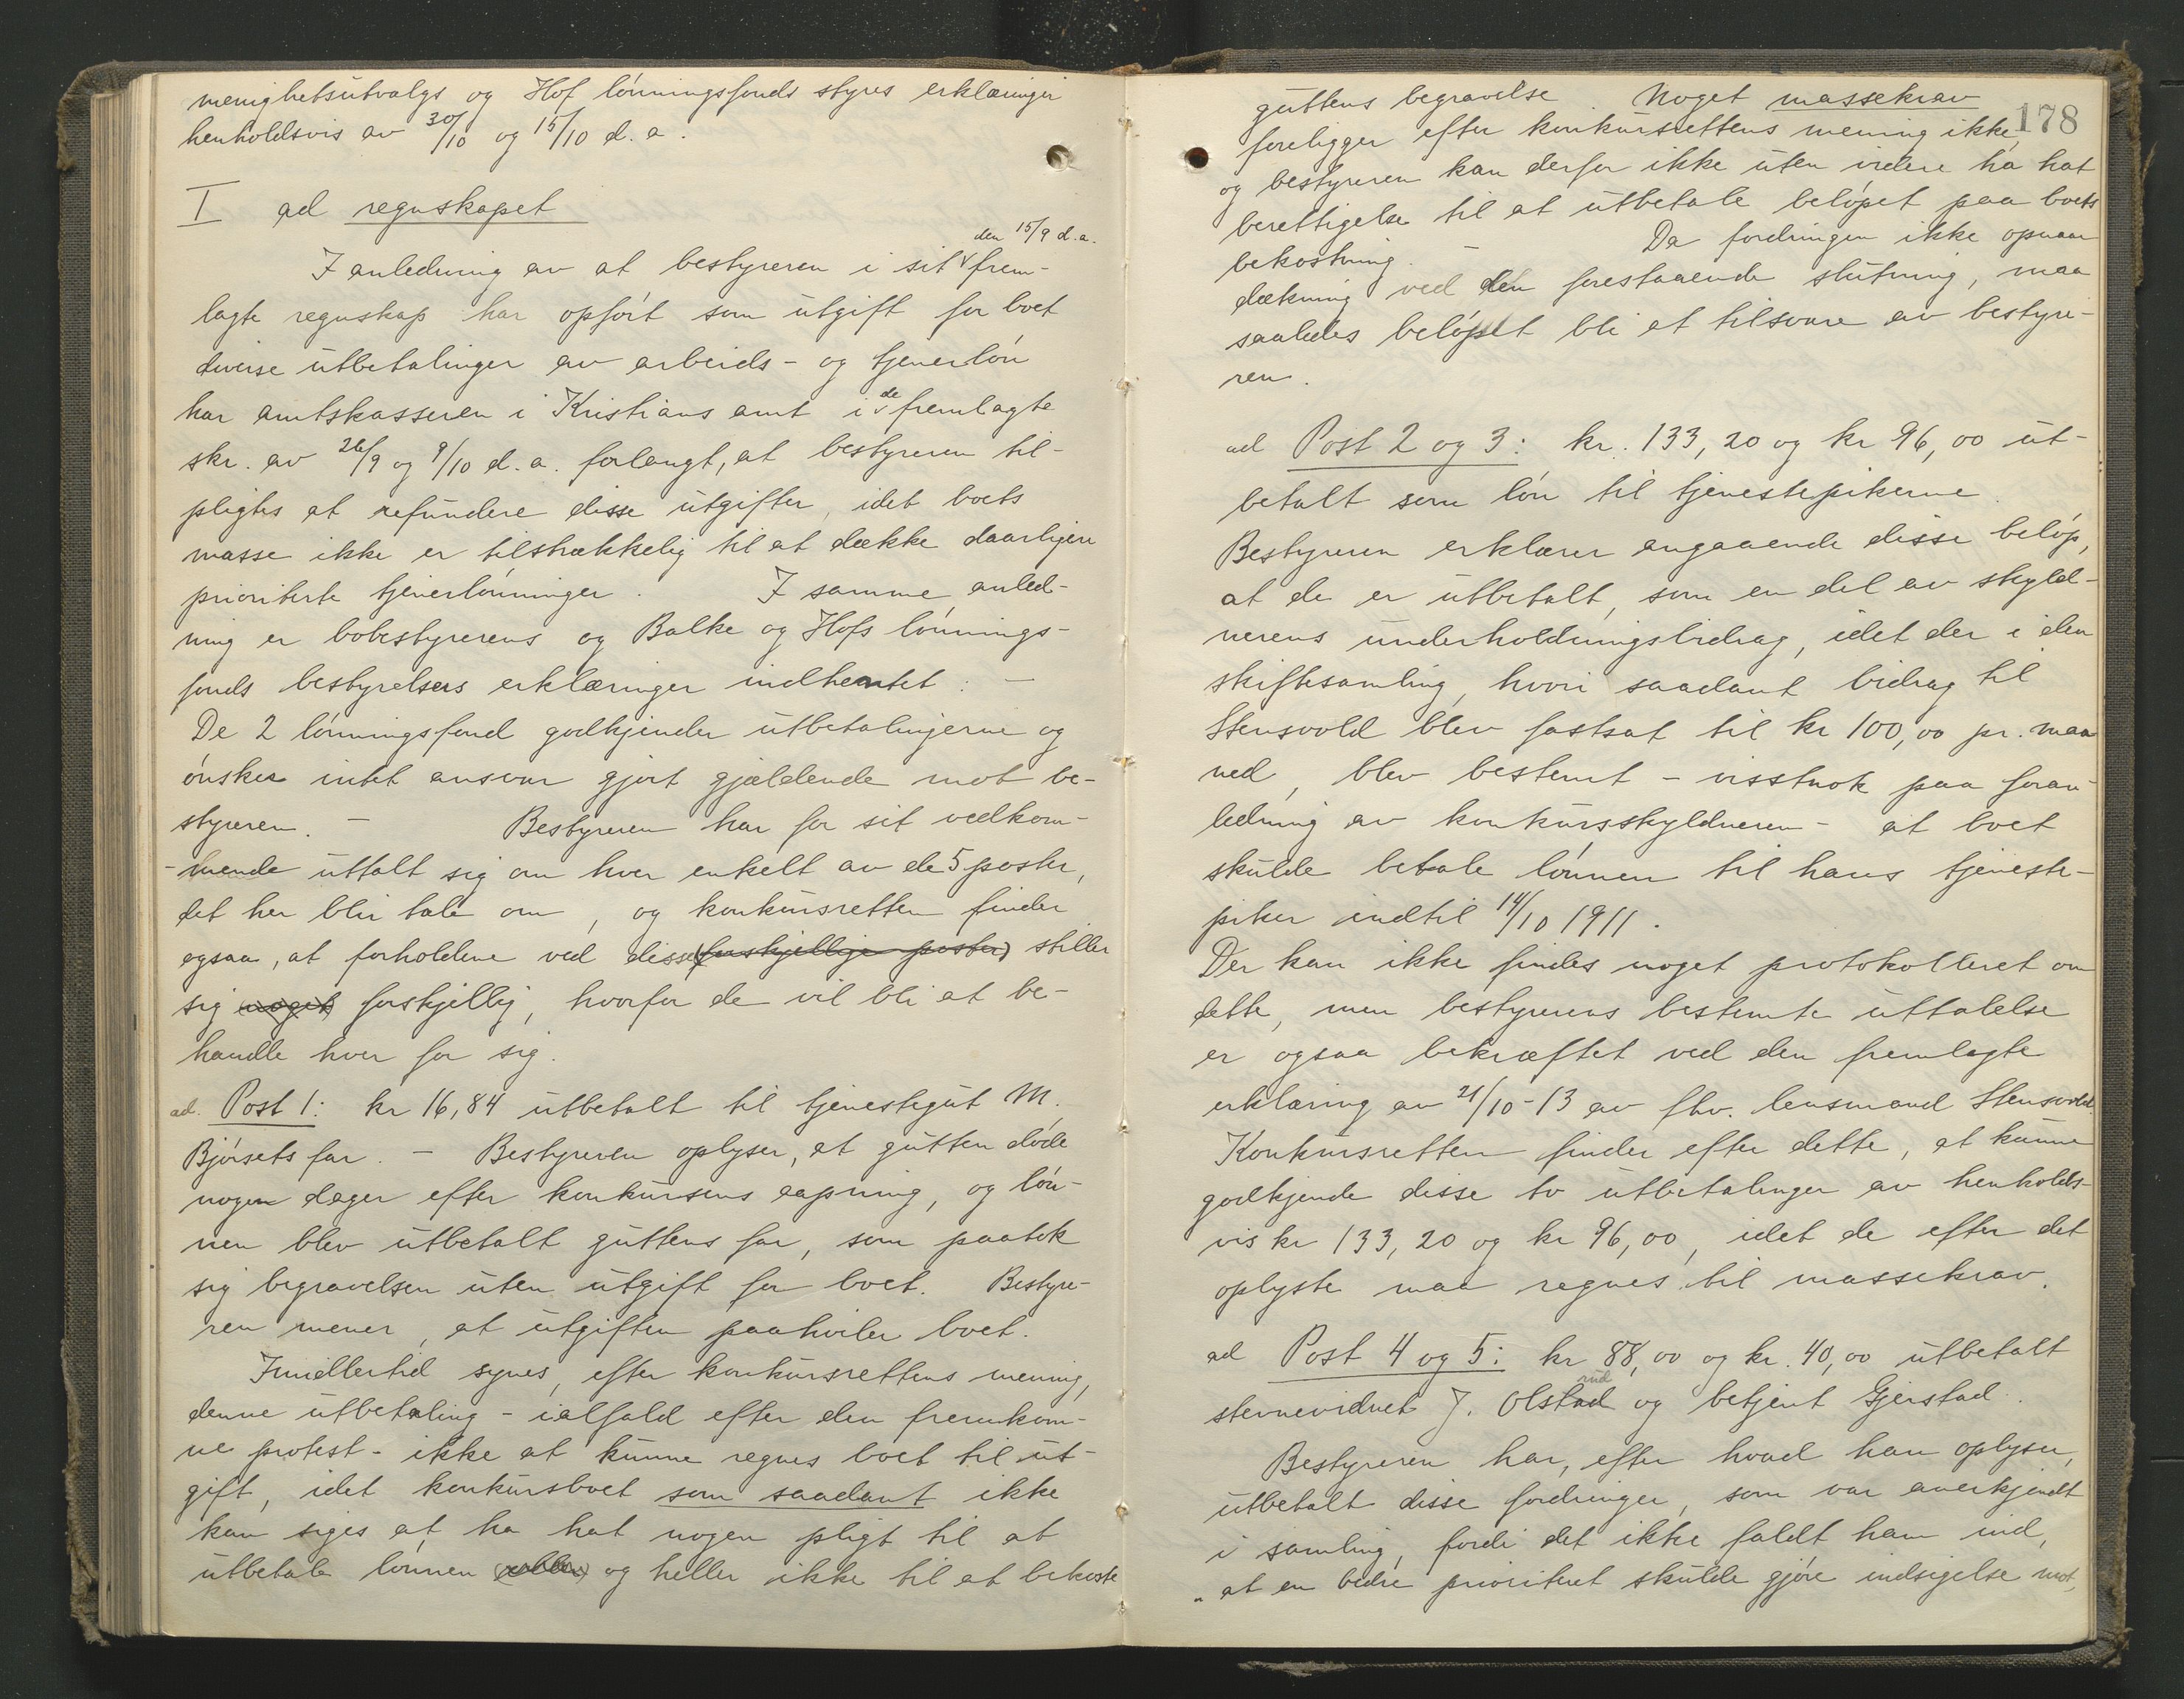 menighetsutvalgs og Hof lønningsfonds styres erklæringer
henholdsvis av 30/10 og 15/10 d. a.
I ad regnskapet
den 15/9 d.a.
I anledning av at bestyreren i sit frem-
lagte regnskap har opført som utgift for boet
diverse utbetalinger av arbeids- og tjenerløn
har amtskasseren i Kristians amt i de fremlagte
skr. av 26/9 og 9/10 d. a. forlangt, at bestyreren til-
pligtes at refundere disse utgifter, idet boets
masse ikke er tilstrækkelig til at dække daarligere
prioriterte tjenerlønninger. I samme anled-
ning er bobestyrerens og Balke og Hofs lønnings-
fonds bestyrelsers erklæringer indhentet: -
De 2 lønningsfond godkjender utbetalingerne og
ønsker intet ansvar gjort gjældende mot be-
styreren. - Bestyreren har for sit vedkom-
-mende uttalt sig om hver enkelt av de 5 poster,
det her blir tale om, og konkursretten finder
ogsaa, at forholdene ved disse (forskjellige poster) stiller
sig (noget) forskjellig, hvorfor de vil bli at be-
handle hver for sig.
ad. Post 1: kr 16,84 utbetalt til tjenestegut M.
Bjørsets far. - Bestyreren oplyser, at gutten døde
nogen dager efter konkursens aapning, og løn-
nen blev utbetalt guttens far, som paatok
sig begravelsen uten utgift for boet. Bestyre-
ren mener, at utgiften paahviler boet.
Imidlertid synes, efter konkursrettens mening,
denne utbetaling - ialfald efter den fremkom-
ne protest - ikke at kunne regnes boet til ut-
gift, idet konkursboet som saadant ikke
kan siges at ha hat nogen pligt til at
utbetale lønnen og heller ikke til at bekoste
178
guttens begravelse. Noget massekrav
foreligger efter konkursrettens mening ikke,
og bestyreren kan derfor ikke uten videre ha hat
berettigelse til at utbetale beløpet paa boets
bekostning. - Da fordringen ikke opnaar
dækning ved den forestaaende slutning, maa
saaledes beløpet bli et tilsvare av bestyre-
ren.
ad Post 2 og 3: kr. 133,20 og kr 96,00 ut-
betalt som løn til tjenestepikerne.
Bestyreren erklærer angaaende disse beløp,
at de er utbetalt, som en del av skyld-
nerens underholdningsbidrag, idet der i den
skiftesamling, hvori saadant bidrag til
Stensvold blev fastsat til kr 100,00 pr. maa
ned, blev bestemt - visstnok paa foran-
ledning av konkursskyldneren - at boet
skulde betale lønnen til hans tjeneste-
piker indtil 14/10 1911.
Der kan ikke findes noget protokolleret om
dette, men bestyrerens bestemte uttalelse
er ogsaa bekræftet ved den fremlagte
erklæring av 21/10-13 av fhv. lensmand Stensvold
Konkursretten finder efter dette, at kunne
godkjende disse to utbetalinger av henholds-
vis kr 133,20 og kr 96,00, idet de efter det
oplyste maa regnes til massekrav.
ad Post 4 og 5: kr 88,00 og kr. 40,00 utbetalt
rud
stevnevidnet J. Olstad og betjent Gjerstad.
Bestyreren har, efter hvad han oplyser,
utbetalt disse fordringer, som var anerkjendt
i samling, fordi det ikke faldt ham ind,
"at en bedre prioritert skulde gjøre indsigelse mot,